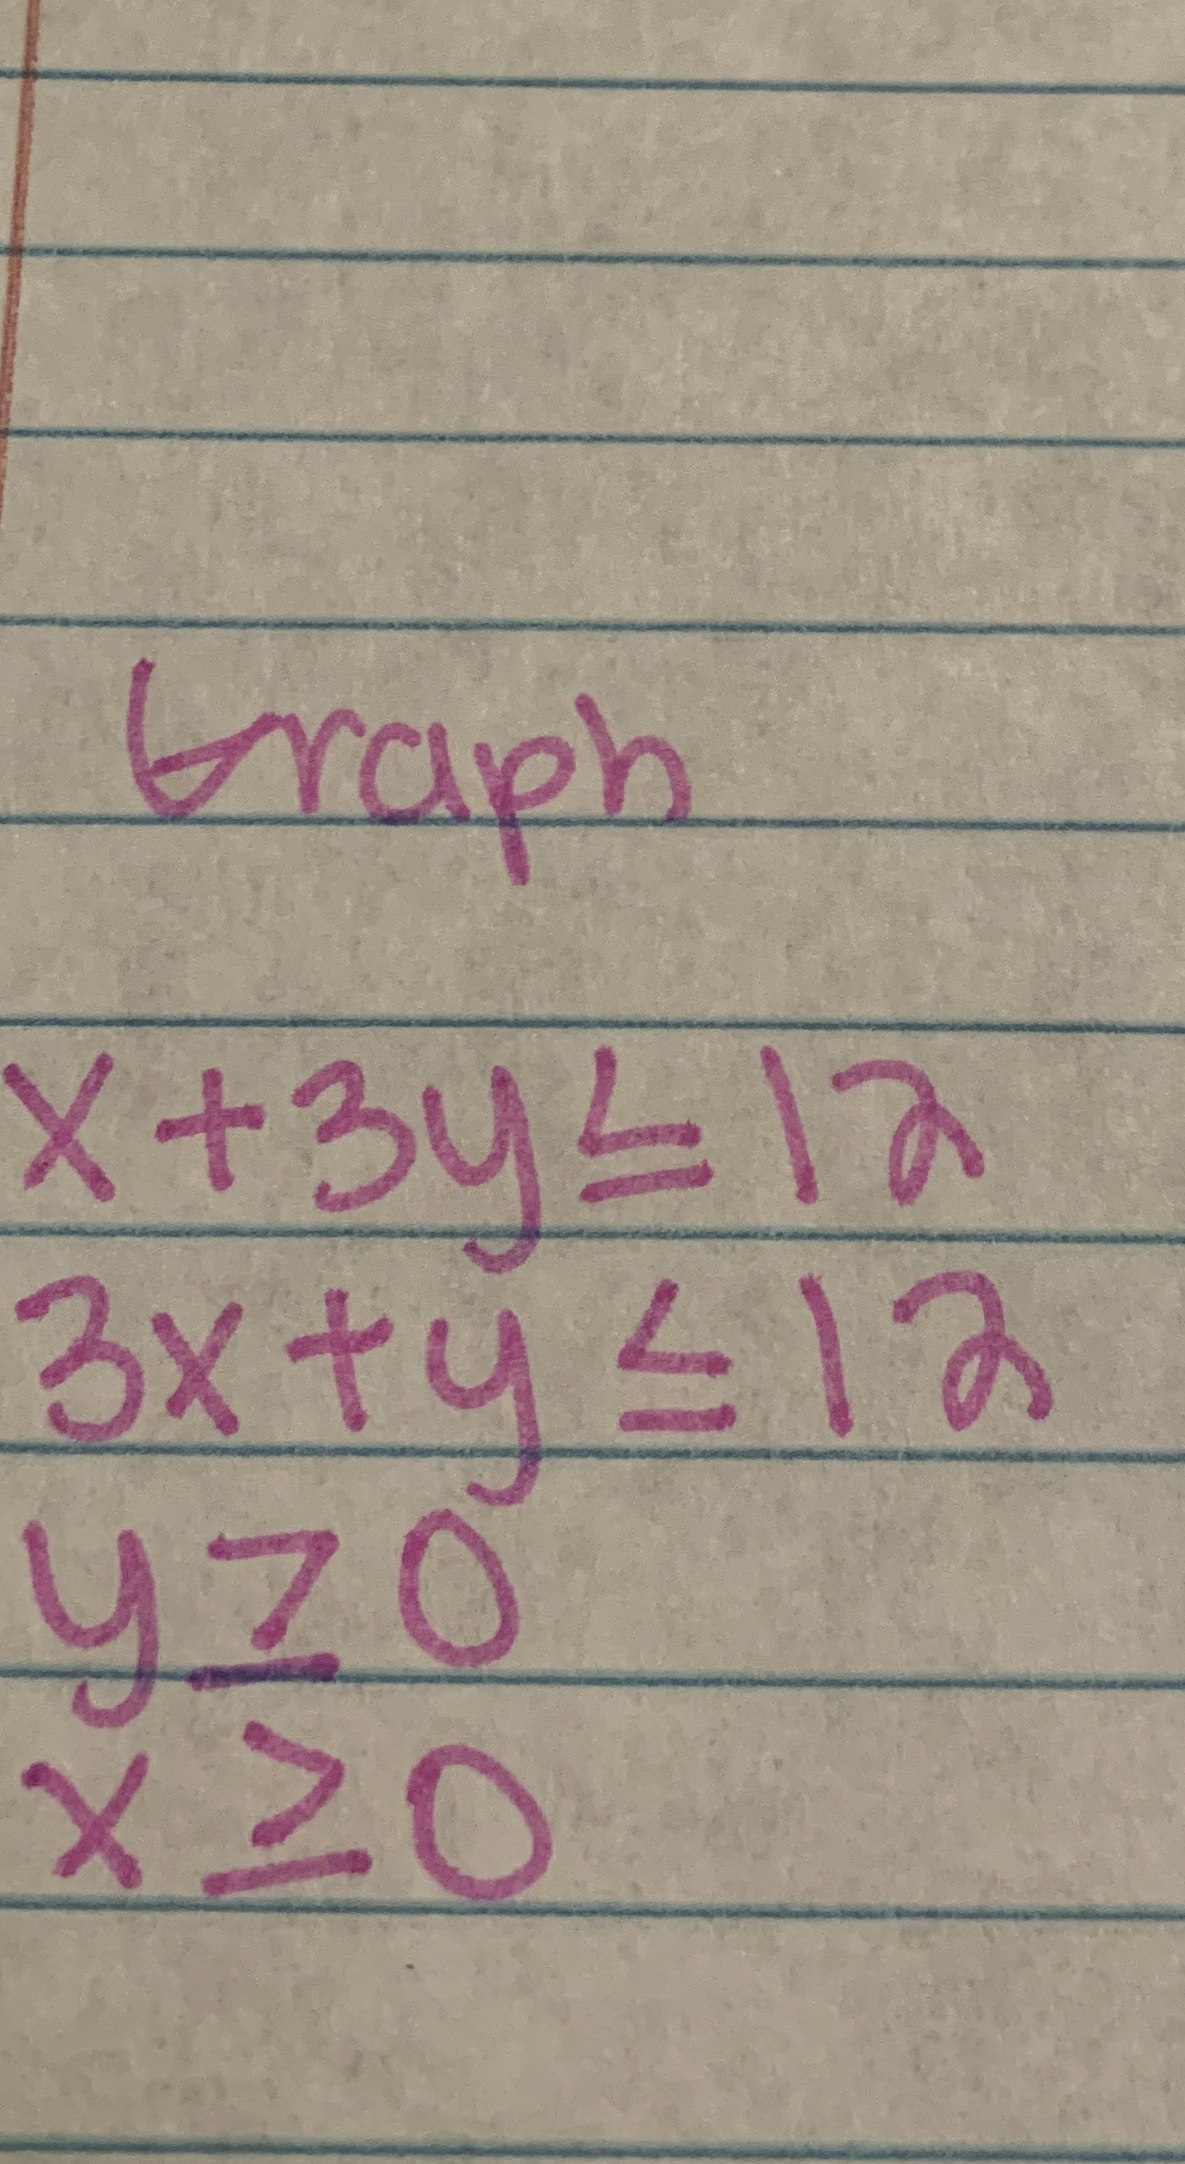 Graph
x + 3y ≤ 12
3x + y ≤ 12
y ≥ 0
x ≥ 0